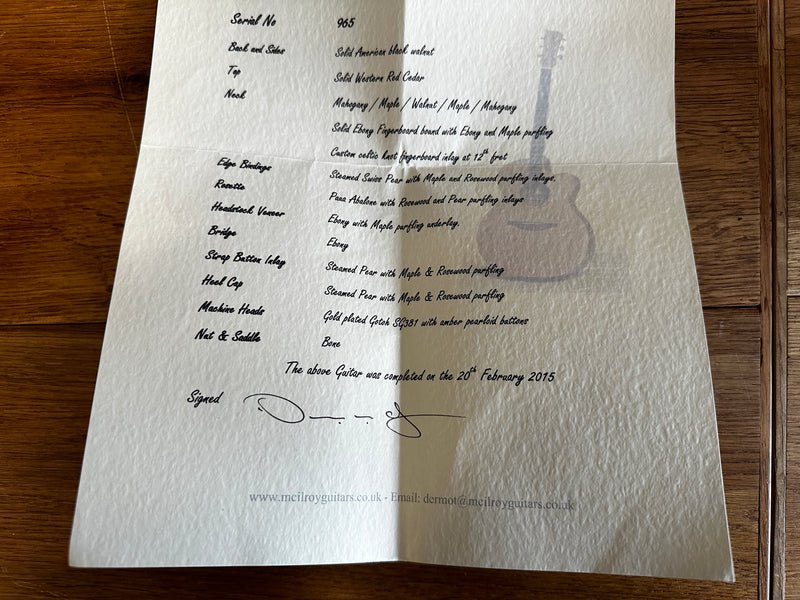 Serial No 965
Back and Sides Solid American black walnut
Top Solid Western Red Cedar
Neck Mahogany / Maple / Walnut / Maple / Mahogany
Solid Ebony Fingerboard bound with Ebony and Maple purfling
Custom celtic knot fingerboard inlay at 12th fret
Edge Bindings Steamed Swiss Pear with Maple and Rosewood purfling inlays.
Rosette Paua Abalone with Rosewood and Pear purfling inlays
Headstock Veneer Ebony with Maple purfling underlay.
Bridge Ebony
Strap Button Inlay Steamed Pear with Maple & Rosewood purfling
Heel Cap Steamed Pear with Maple & Rosewood purfling
Machine Heads Gold plated Gotoh SG381 with amber pearloid buttons
Nut & Saddle Bone
The above Guitar was completed on the 20th February 2015
Signed
www.mcilroyguitars.co.uk - Email: dermot@mcilroyguitars.co.uk